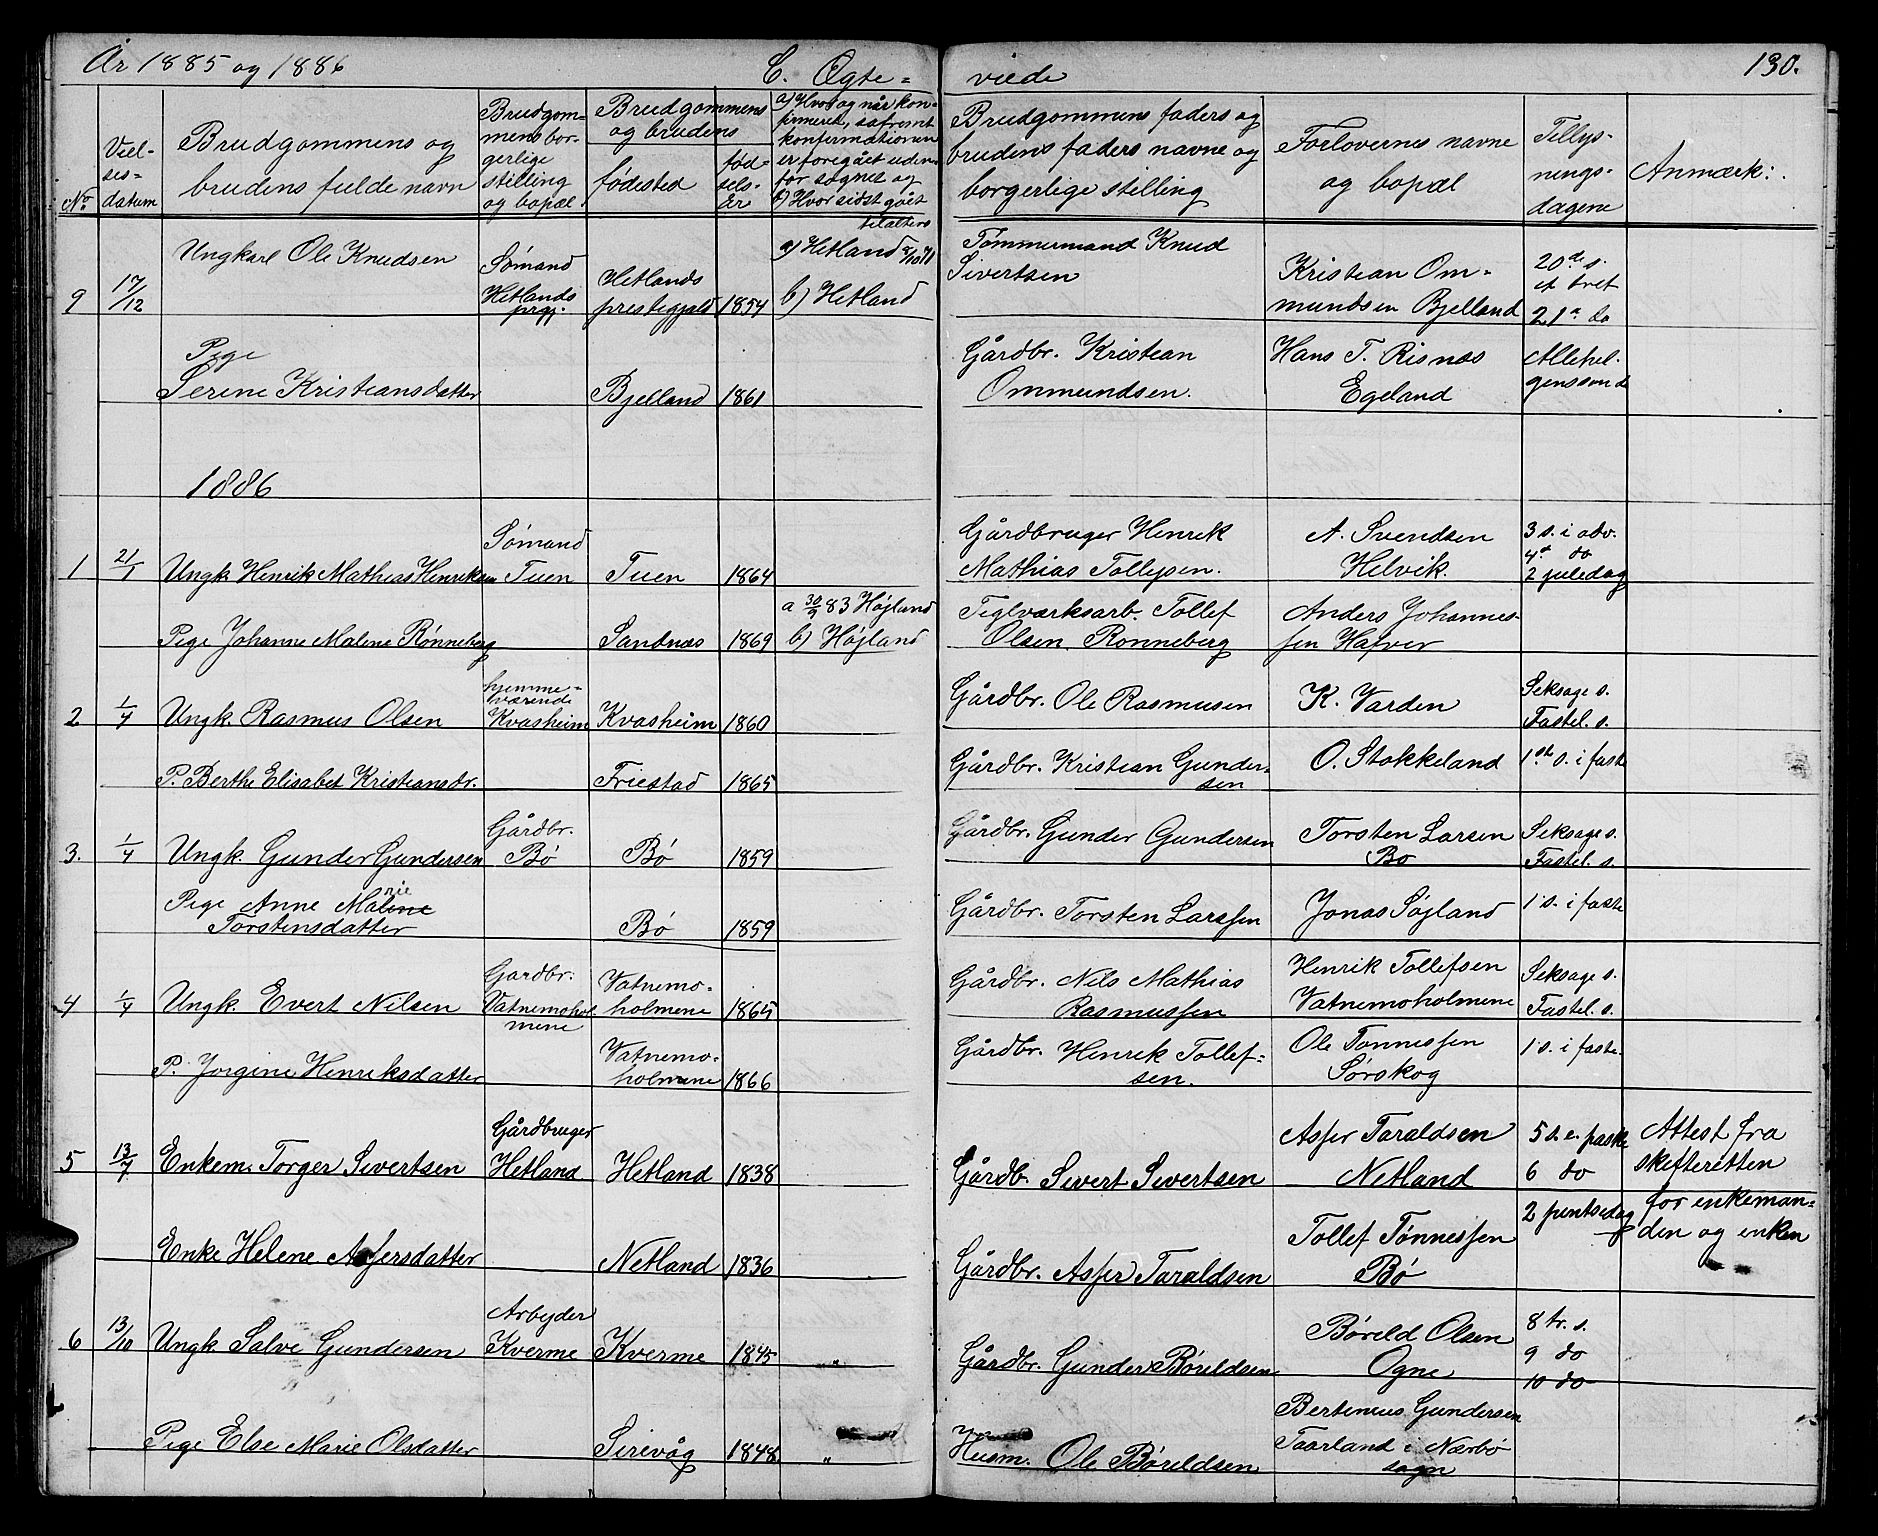 År 1885 og 1886
C. Ægte-
viede
130.
No.
Viel-
ses-
datum
Brudgommens og
brudens fulde navn
Brudgom-
mens bor-
gerlige
stilling
og bopæl
Brudgommens
og brudens
fødested
fød-
sels-
År
a) Hvor og når kon-
firmeret, såfremt
konfirmationen
er foregået uden-
for sognet og
b) Hvor sidst gået
til alters
Brudgommens faders og
brudens faders navne og
borgerlige stilling
Forlovernes navne
og bopæl
Tillys-
nings-
dagene
Anmærk:
9
17/12
Ungkarl Ole Knudsen
Sømand
Hetlands
prgj.
Hetlands
prestegjæld
1854
a) Hetland 8/10 71
b) Hetland
Tømmermand Knud
Sivertsen
Kristian Om-
mundsen Bjelland
20de s.
et tret
21a do
Pige
Serine Kristiansdatter
Bjelland
1861
Gårdbr. Kristian
Ommundsen.
Hans T. Risnæs
Egeland
Allehel-
genssønd.
1886
1
21/1
Ungk. Henrik Mathias Henriksen
Sømand
Tuen
Tuen
1864
Gårdbruger Henrik
Mathias Tollefsen.
A. Svendsen
Helvik.
3 s. i adv.
4a do
2 juledag
Pige Johanne Malene Rønneberg
Sandnæs
1869
a 30/9 83 Højland
b) Højland
Teglværksarb. Tollef
Olsen Rønneberg
Anders Johannes-
sen Hafver
2
1/4
Ungk. Rasmus Olsen
hjemme-
værende
Kvasheim
Kvasheim
1860
Gårdbr. Ole Rasmusen
K. Varden
Seksage s.
Fastel. s.
P. Berthe Elisabet Kristiansdr.
Friestad
1865
Gårdbr. Kristian Gunder-
sen
O. Stokkeland
1ste s. i faste
3.
1/4
Ungk. Gunder Gundersen
Gårdbr.
Bø
Bø
1859
Gårdbr. Gunder Gundersen
Torsten Larsen
Bø
Seksage s.
Fastel. s.
Pige Anne Marie
Torstensdatter
Bø
1859
Gårdbr. Torsten Larssen
Jonas Søjland
1 s. i faste
4
1/4
Ungk. Evert Nilsen
Gardbr.
Vatnemohol
mene
Vatnemo-
holmene
1865
Gårdbr. Nils Mathias
Rasmussen
Henrik Tollefsen
Vatnemoholmene
Seksage s.
Fastel. s.
P. Jorgine Henriksdatter
Vatnemo-
holmene
1866
Gårdbr. Henrik Tollef-
sen.
Ole Tønnessen
Sørskog
1 s. i faste.
5
13/7
Enkem. Torger Sivertsen
Gårdbruger
Hetland
Hetland
1838
Gårdb. Sivert Sivertsen
Asser Taraldsen
Netland
5 s. e. paske
6 do
Attest fra
skifteretten
Enke Helene Assersdatter
Netland
1836
Gårdbr. Asser Taraldsen
Tollef Tønnessen
Bø
2 pintsedag
for enkeman-
den og enken
6
13/10
Ungk. Salve Gundersen
Arbejder
Kverme
Kverme
1845
"
Gårdbr. Gunder Børildsen
Børeld Olsen
Ogne
8 tr. s.
9 do
10 do
Pige Else Marie Olsdatter
Sirevåg
1848
"
Husm. Ole Børeldsen
Bertinius Gundersen
Taarland i Nærbø
sogn